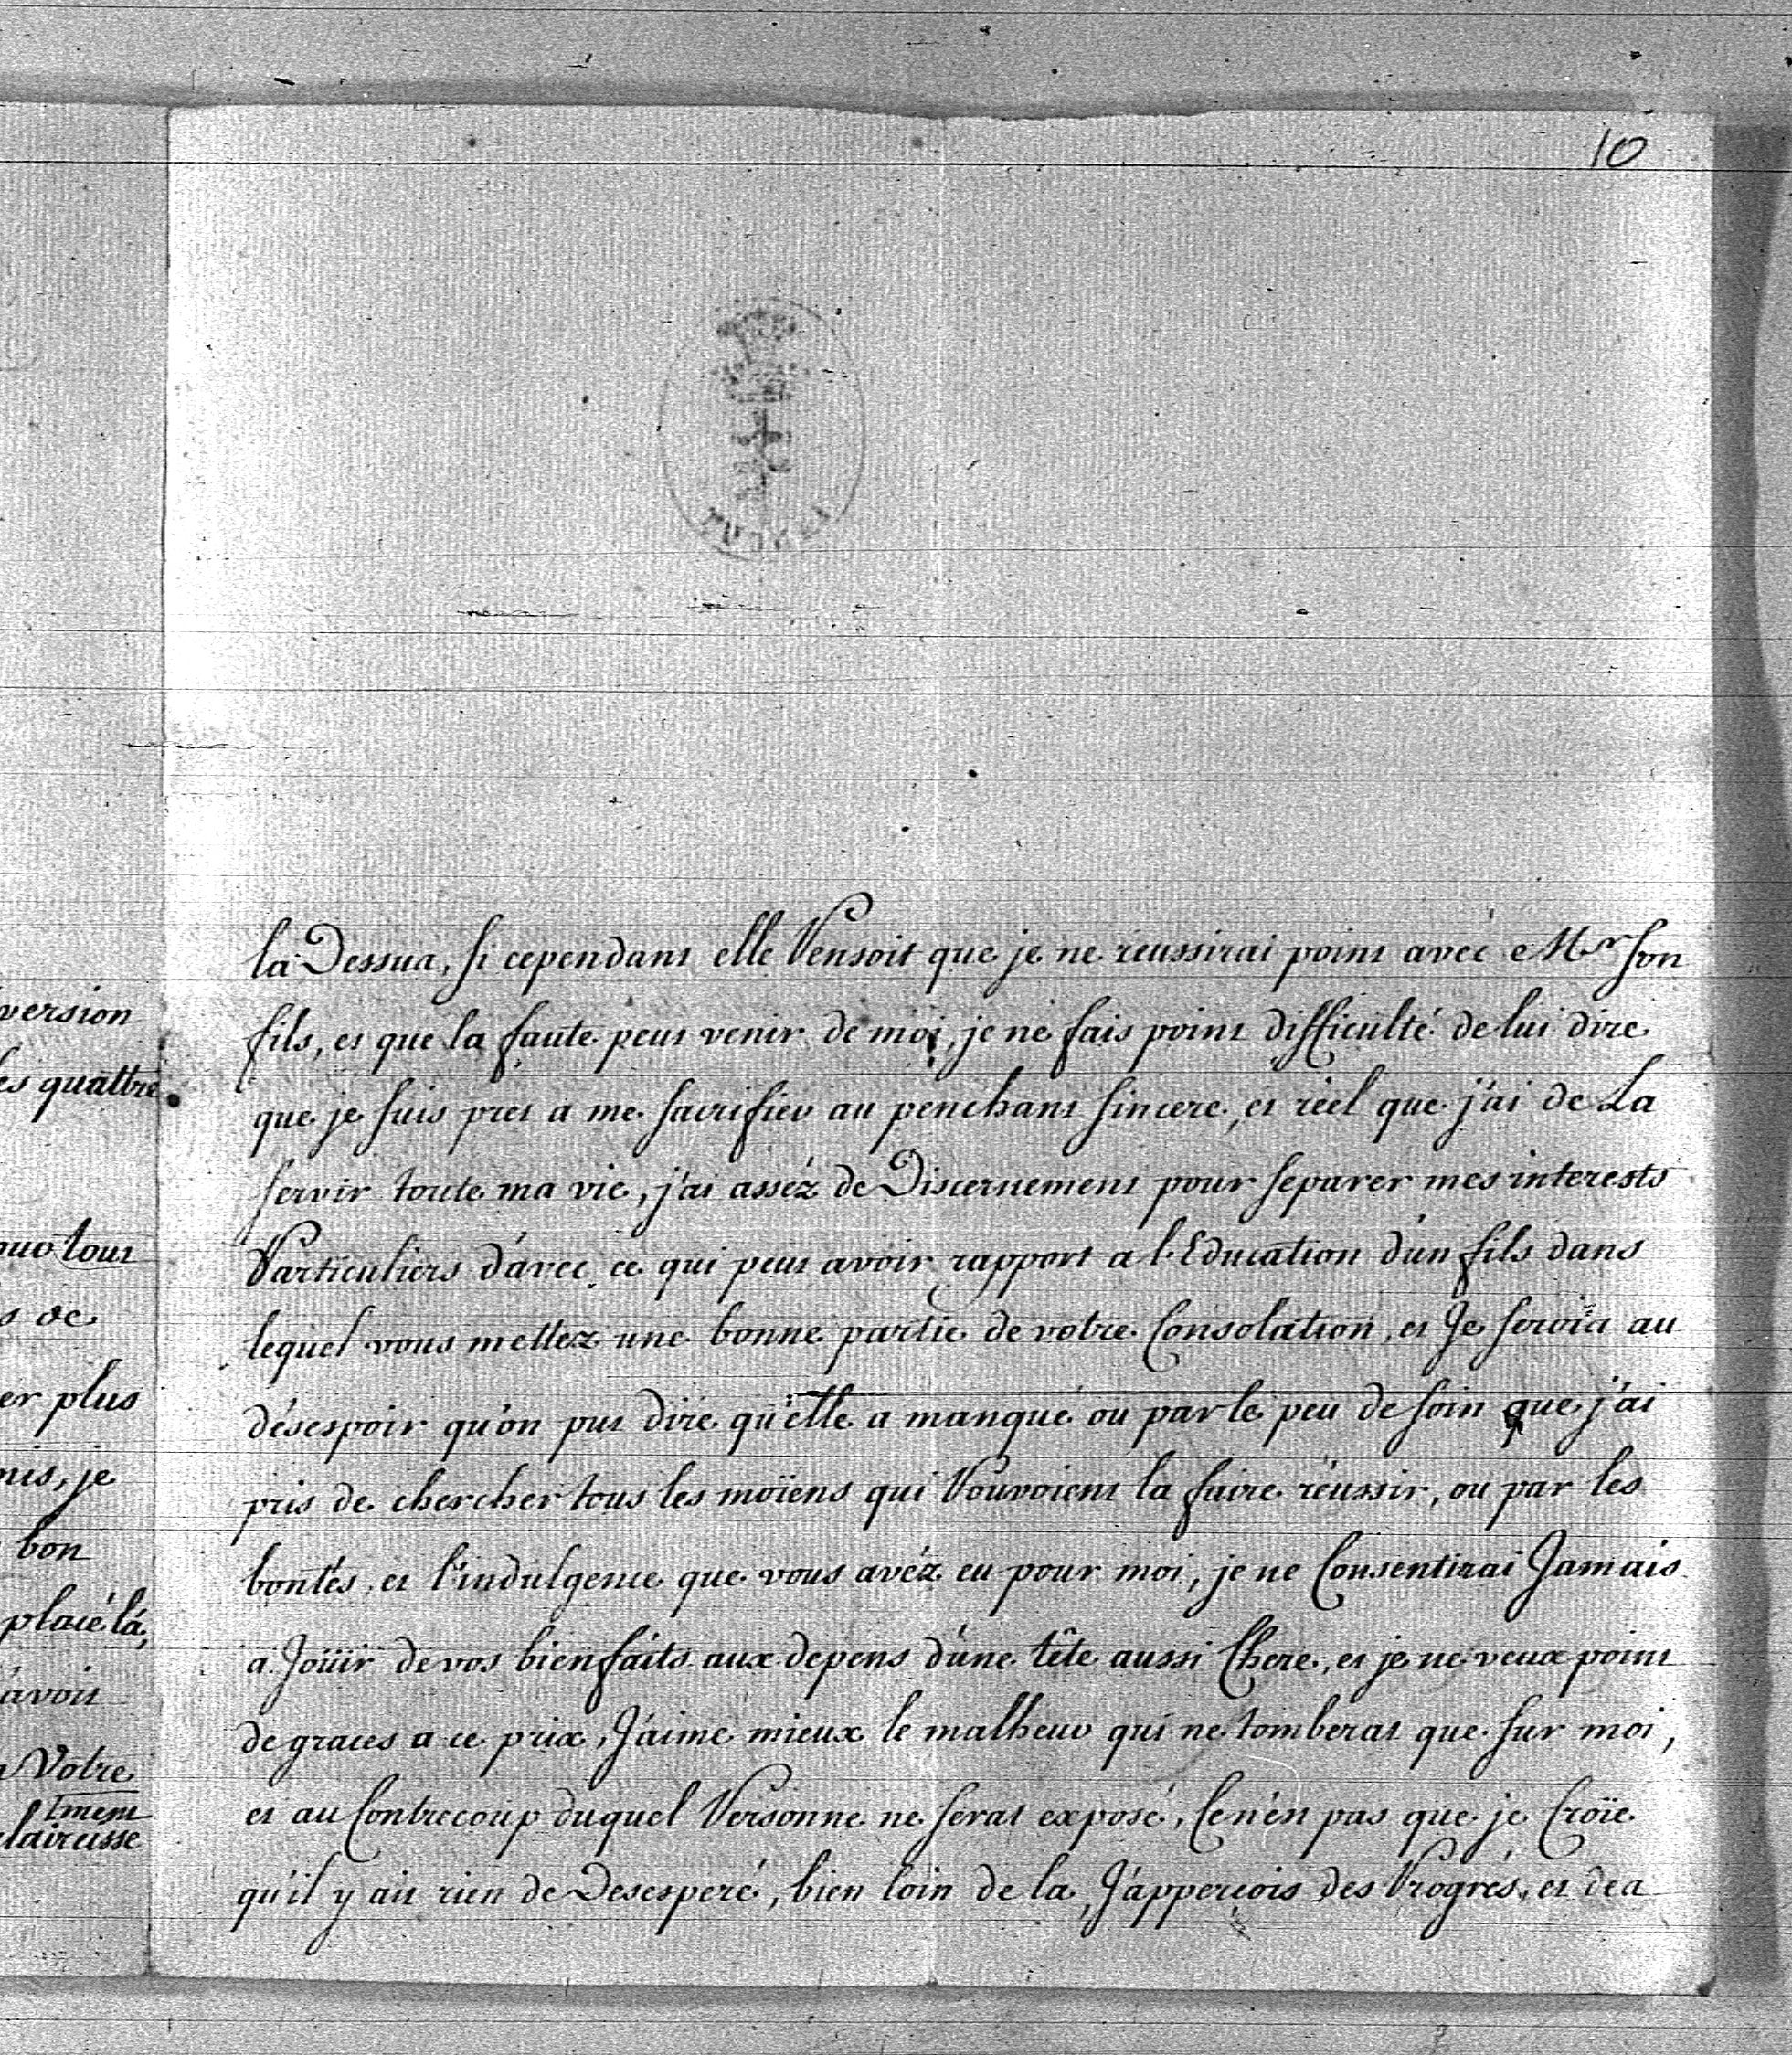 10
version
es quattre
tout
de
er plus
mis, je
bon
placé là,
avoit
Votre
tment
claircisse
la Dessus, si cependant elle Pensoit que je ne reussirai point avec Mr son
fils, et que la faute peut venir de moi, je ne fais point difficulté de lui dire
que je suis pret a me sacrifier au penchant sincere, et réel que j'ai de La
servir toute ma vie, j'ai asséz de Discernement pour separer mes interests
Particuliers d'avec ce qui peut avoir rapport a l'Education d'un fils dans
lequel vous mettez une bonne partie de votre Consolation, et Je serois au
désespoir qu'on put dire qu'elle a manqué ou par le peu de soin que j'ai
pris de chercher tous les moïens qui Pouvoient la faire réussir, ou par les
bontés, et l'indulgence que vous avéz eu pour moi, je ne Consentirai Jamais
a Joüir de vos bienfaits aux depens d'une tête aussi Chere, et je ne veux point
de graces a ce prix, J'aime mieux le malheur qui ne tomberat que sur moi,
et au Contrecoup duquel Personne ne serat exposé, Ce n'est pas que je Croïe
qu'il y ait rien de Desesperé, bien loin de la, J'apperçois des Progrés, et des